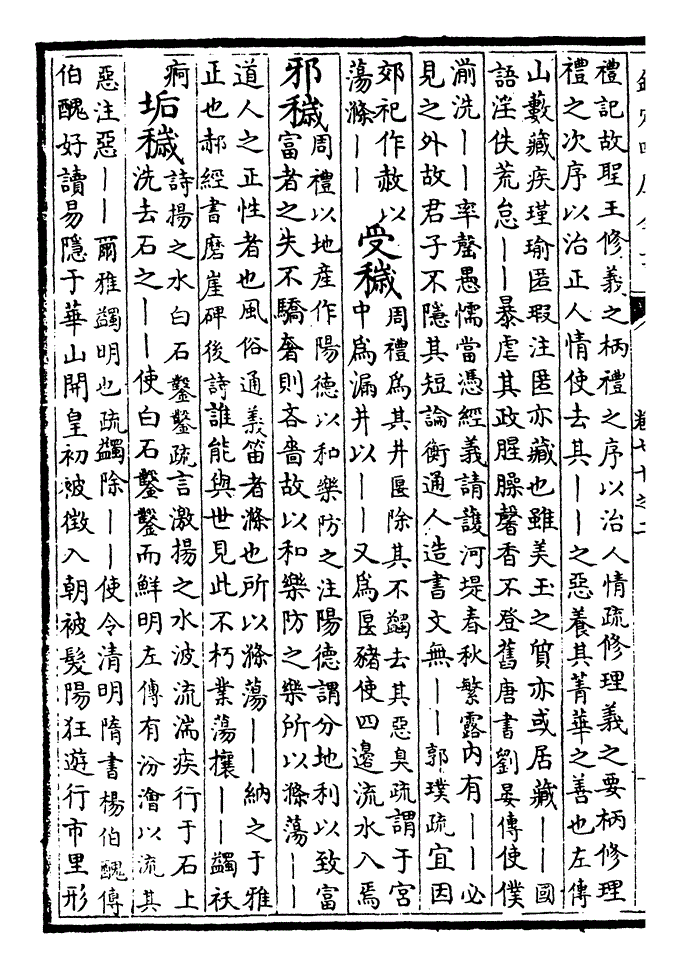 禮記故聖王修義之柄禮之序以治人情疏修理義之要柄修理
禮之次序以治正人情使去其――之惡養其菁華之善也左傳
山藪藏疾瑾瑜匿瑕注匿亦藏也雖美玉之質亦或居藏――國
語淫佚荒怠――暴虐其政腥臊馨香不登舊唐書劉晏傳使僕
湔洗――率罄愚懦當憑經義請護河堤春秋繁露內有――必
見之外故君子不隱其短論衡通人造書文無――郭璞疏宜因
郊祀作赦以
蕩滌――
受穢
周禮爲其井匽除其不蠲去其惡臭疏謂于宮
中爲漏井以――又爲匽豬使四邊流水入焉
邪穢
周禮以地產作陽德以和樂防之注陽德謂分地利以致富
富者之失不驕奢則吝嗇故以和樂防之樂所以滌蕩――
道人之正性者也風俗通義笛者滌也所以滌蕩――納之于雅
正也郝經書磨崖碑後詩誰能與世見此不朽業蕩攘――蠲祅
痾
垢穢
詩揚之水白石鑿鑿疏言激揚之水波流湍疾行于石上
洗去石之――使白石鑿鑿而鮮明左傳有汾澮以流其
惡注惡――爾雅蠲明也疏蠲除――使令清明隋書楊伯醜傳
伯醜好讀易隱于華山開皇初被徵入朝被髮陽狂遊行市里形